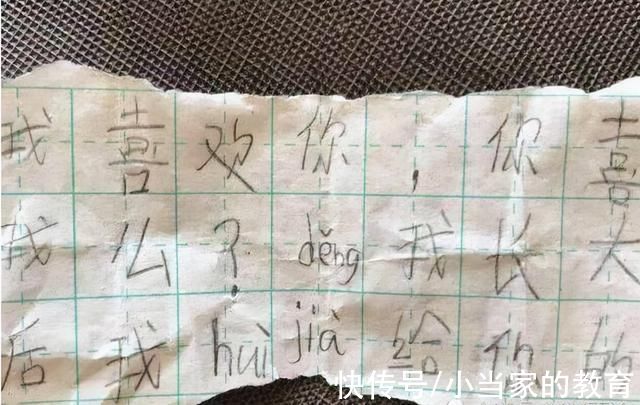 我喜欢你，你喜
我么？děng我长大
后我huì jià给你的
快传号/小当家的教育